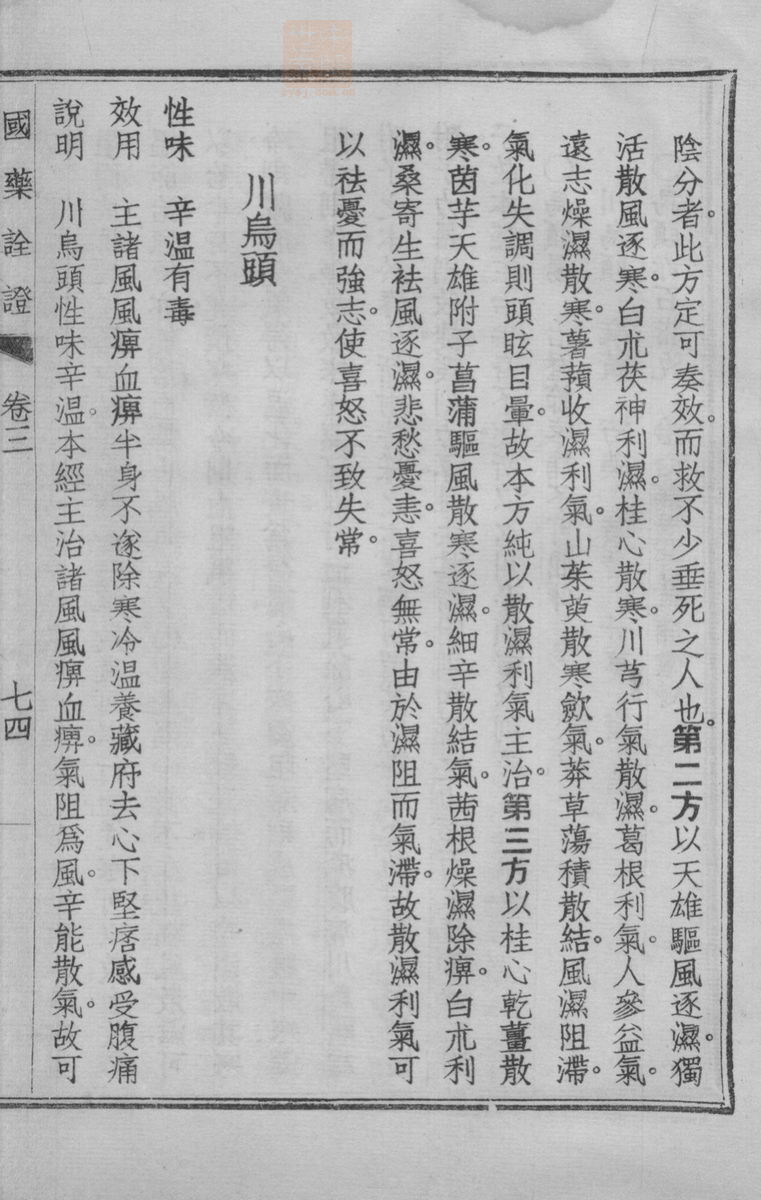 陰分者。此方定可奏效。而救不少垂死之人也。第二方以天雄驅風逐濕。獨
活散風逐寒。白朮茯神利濕。桂心散寒。川芎行氣散濕。葛根利氣。人參益氣。
遠志燥濕散寒。薯蕷收濕利氣。山茱萸散寒歛氣。莽草蕩積散結。風濕阻滯。
氣化失調則頭眩目暈。故本方純以散濕利氣主治。第三方以桂心乾薑散
寒。茵芋天雄附子菖蒲驅風散寒逐濕。細辛散結氣。茜根燥濕除痹。白朮利
濕。桑寄生祛風逐濕。悲愁憂恚。喜怒無常。由於濕阻而氣滯。故散濕利氣可
以祛憂而強志。使喜怒不致失常。
川烏頭
性味 辛溫有毒
效用 主諸風風痹血痹半身不遂除寒冷温養藏府去心下堅痞感受腹痛
說明 川烏頭性味辛溫。本經主治諸風風痹血痹。氣阻爲風。辛能散氣。故可
國藥詮證 卷三 七四